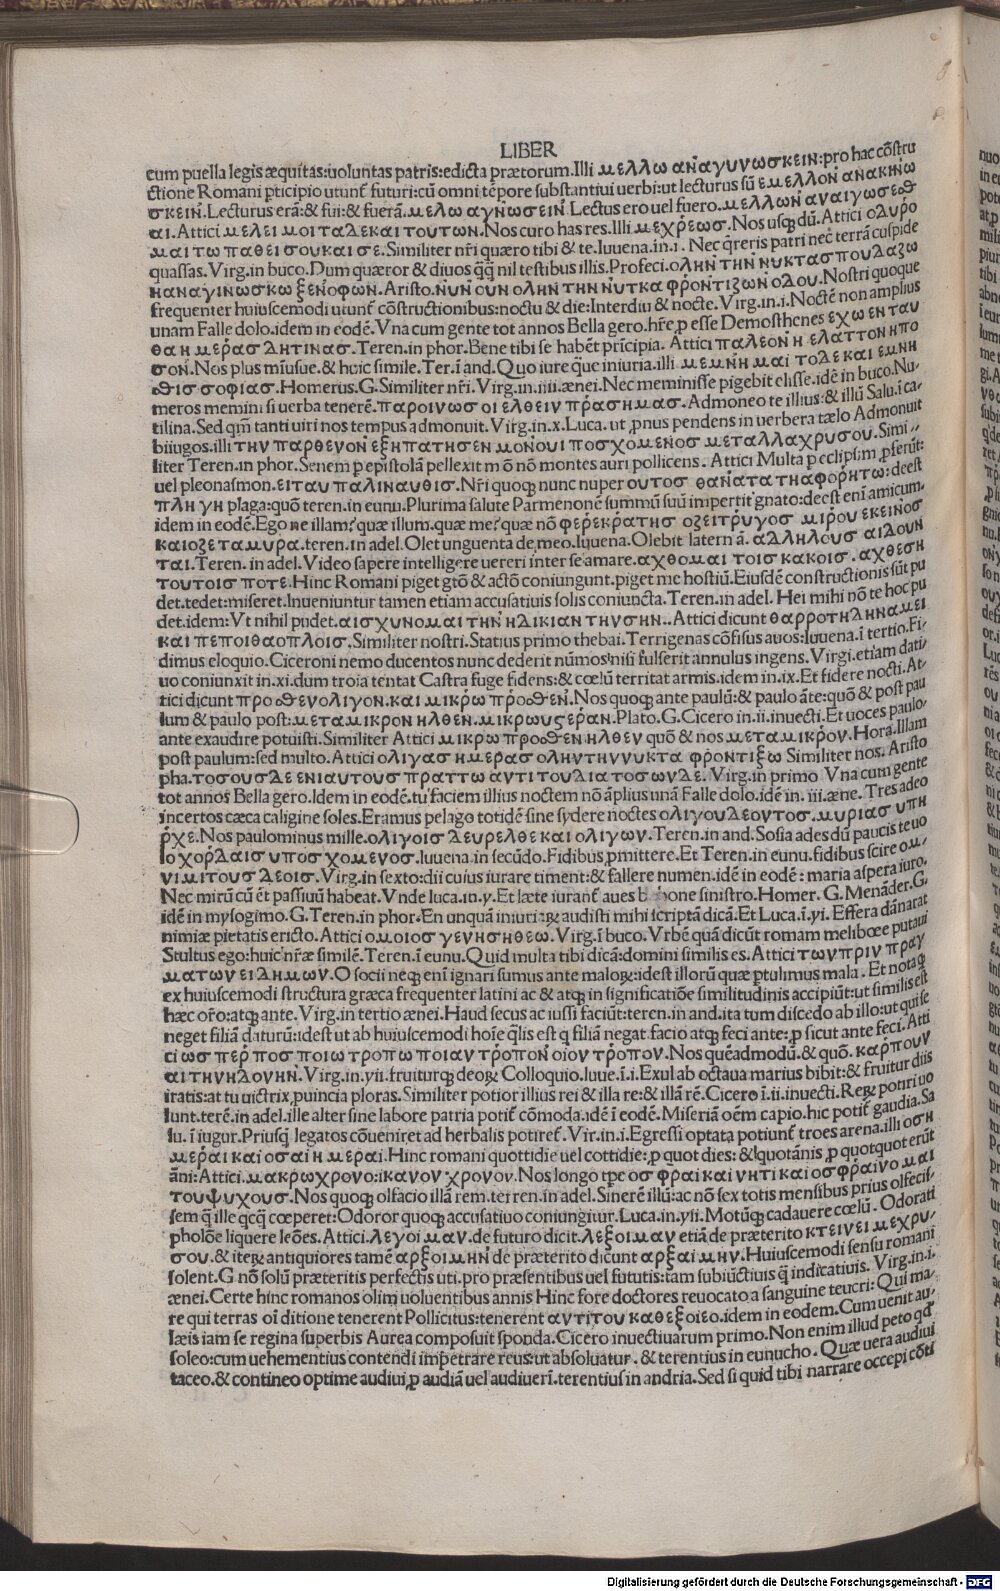 LIBER
eum puella legis æquitas:uoluntas patris:edicta prætorum.Illi μελλω ανἀγυνωσκειν:pro hac cõstru
ctione Romani pticipio utunt᷑ futuri:cũ omni tẽpore substantiui uerbi:ut lecturus sũ εμελλον ανακινω
σκειν.Lecturus erã:& fui:& fuerã.μελω αγνωσειν.Lectus ero uel fuero.μελλων αναιγωσεσθ
αι.Attici μελει μοι ταδε και τουτων.Nos curo has res.Illi μεχρεωσ.Nos usq; dũ.Attici οδυρο
μαι τω παθει σου και σε.Similiter nr̃i quæro tibi & te.Iuuena.in.i. Nec q̃reris patri nec terrã cuspide
quassas.Virg.in buco.Dum quæror & diuos q̃q̃ nil testibus illis.Profeci.ολην την νυκτασπουδαζω
καναγινωσκω ξενοφων.Aristo.νυν ουν ολην την νυτκα φροντιζων οδου.Nostri quoque
frequenter huiuscemodi utunt᷑ cõstructionibus:noctu & die:Interdiu & nocte.Virg.in.i.Noctẽ non amplius
unam Falle dolo.idem in eodẽ.Vna cum gente tot annos Bella gero.hr̃e,p esse Demosthenes εχω ενταυ
θα ημερασ δητινασ.Teren.in phor.Bene tibi se habẽt prĩcipia. Attici παλεον η ελαττον ηπο
σον.Nos plus mĩusue.& huic simile.Ter.ĩ and.Quo iure q̃ue iniuria.illi μεμνη μαι τοδε και εμνη
σθισ σοφιασ.Homerus.G.Similiter nr̃i.Virg.in.iiii.ænei.Nec meminisse pigebit elisse.idẽ in buco.Nu-
meros memini si uerba tenerẽ.παροινωσ οι ελθειν πρασημασ.Admoneo te illius:& illũ Salu.ĩ ca-
tilina.Sed qm̃ tanti uiri nos tempus admonuit.Virg.in.x.Luca. ut ,pnus pendens in uerbera tælo Admonuit
biiugos.illi την παρθενον εξηπατησεν μονουι ποσχομενοσ μεταλλαχρυσου.Simi-
liter Teren.in phor.Senem p epistolã pellexit m õ nõ montes auri pollicens. Attici Multa p eclipsim ,pferũt:
uel pleonasmon.ειταυ παλιναυθισ.Nr̃i quoq; nunc nuper ουτοσ θανατα τηαφορητω:deest
πλη γη plaga:quõ teren.in eunu.Plurima salute Parmenonẽ summũ suũ impertit gnato:deest enĩ amicum.
idem in eodẽ.Ego ne illam?quæ illum.quæ me?quæ nõ φερεκρατησ οζειτρυγοσ μιρου εκεινοσ
καιοζεταμυρα.teren.in adel.Olet unguenta de meo.Iuuena.Olebit latern ã. αλληλουσ αιδουν
ται.Teren. in adel.Video sapere intelligere uereri inter se amare.αχθομαι τοισ κακοισ.αχθεση
τουτοισ ποτε.Hinc Romani piget gtõ & actõ coniungunt.piget me hostiũ.Eiusdẽ constructionis sũt pu
det.tedet:miseret.Inueniuntur tamen etiam accusatiuis solis coniuncta.Teren.in adel. Hei mihi nõ te hoc pu
det.idem:Vt nihil pudet.αισχυνομαι την ηλικιαν τηνσην..Attici dicunt θαρροτηλη ναμει
και πεποιθαοπλοισ.Similiter nostri.Statius primo thebai.Terrigenas cõfisus auos:Iuuena.ĩ tertio.Fi-
dimus eloquio.Ciceroni nemo ducentos nunc dederit nũmos'nisi fulserit annulus ingens.Virgi.etiam dati-
uo coniunxit in.xi.dum troia tentat Castra fuge fidens:& cœlũ territat armis.idem in.ix.Et fidere nocti.At-
tici dicunt προσθενολιγον.και μικρω προσθεν.Nos quoq; ante paulũ:& paulo ãte:quõ & post pau
lum & paulo post:μεταμικρον ηλθεν.μικρωυςεραν.Plato.G.Cicero in.ii.inuecti.Et uoces paulo-
ante exaudire potuisti.Similiter Attici μικρω προσθεν ηλθεν quõ & nos μεταμικρον.Hora.Illam
post paulum:sed multo.Attici ολιγασ ημερασ οληντηννυκτα φροντιξω Similiter nos. Aristo
pha.τοσουσδε ενιαυτουσ πραττω αντι τουδιατοσωνδε. Virg.in primo Vna cum gente
tot annos Bella gero.Idem in eodẽ.tu faciem illius noctem nõ ãplius unã Falle dolo.idẽ in. iii.æne. Tres adeo
incertos cæca caligine soles.Eramus pelago totidẽ sine sydere noctes ολιγουδεοντοσ.μυριασ υπη
ρχε.Nos paulominus mille.ολιγοισ δευρελθε και ολιγων.Teren.in and.Sosia ades dũ paucis te uo
lo χορδαισ υποσ χομενοσ.Iuuena.in secũdo.Fidibus ,pmittere.Et Teren.in eunu.fidibus scire ομ-
νιμιτουσ δεοισ.Virg.in sexto:dii cuius iurare timent:& fallere numen.idẽ in eodẽ: maria aspera iuro.
Nec mirũ cũ ẽt passiuũ habeat.Vnde luca.in.y.Et læte iurant᷑ aues bubone sinistro.Homer. G. Menãder.G.
idẽ in mysogimo.G.Teren.in phor.En unquã iniuriaꝝ audisti mihi scriptã dicã.Et Luca.ĩ.yi. Effera dãnarat
nimiæ pietatis ericto.Attici ομοιοσ γενησηθεω.Virg.ĩ buco.Vrbẽ quã dicũt romam melibœe putaui
Stultus ego:huic nr̃æ similẽ.Teren.ĩ eunu.Quid multa tibi dicã:domini similis es.Attici τωνπριν πραγ
ματων ειδημων.O socii neq; enĩ ignari sumus ante maloꝝ:idest illorũ quæ ptulimus mala. Et nota q̃
ex huiuscemodi structura græca frequenter latini ac & atq; in significatiõe similitudinis accipiũt:ut similis est
hæc or̃o:atq; ante. Virg.in tertio ænei. Haud secus ac iussi faciũt:teren.in and.ita tum discedo ab illo:ut qui se
neget filiã daturũ:idest ut ab huiuscemodi hoĩe q̃lis est q filiã negat.facio atq; feci ante:,p sicut ante feci.Atti
ci ωσ περ ποσ ποιω τροπω ποιαν τροπον οιον τροπον.Nos quẽadmodũ.& quõ. καρπουν
αι τηνηδονην. Virg.in.yii.fruiturq; deoꝝ Colloquio.Iuue.ĩ.i.Exul ab octaua marius bibit:& fruitur diis
iratis:at tu uictrix ,puincia ploras. Similiter potior illius rei & illa re:& illã rẽ.Cicero ĩ.ii.inuecti.Reꝝ potiri uo
lunt.terẽ.in adel.ille alter sine labore patria potit᷑ cõmoda.idẽ ĩ eodẽ. Miseriã oẽm capio.hic potit᷑ gaudia.Sa
lu. ĩ iugur.Priusq̃ legatos cõueniret ad herbalis potiret᷑. Vir.in.i.Egressi optata potiunt᷑ troes arena.illi οση
μεραι και οσαιη μεραι.Hinc romani quottidie uel cottidie:,p quot dies: & quotãnis ,p quotquot erũt
ãni:Attici.μακρωχρονο:ικανον χρονον.Nos longo tp̃e οσ φραι και νητι και οσφραινο μαι
τουψυχουσ.Nos quoq; olfacio illã rem.terren.in adel.Sinerẽ illũ:ac nõ sex totis mensibus prius olfecis-
sem q̃ ille qcq̃ cœperet:Odoror quoq; accusatiuo coniungitur.Luca.in.yii. Motũq; cadauere cœlũ. Odorati
pholõe liquere leões.Attici.λεγοι μαν.de futuro dicit.λεξοιμαν etiã de præterito κτεινει μεχρυ-
σου.& iteꝝ antiquiores tamẽ αρξοιμην de præterito dicunt αρξαι μην.Huiuscemodi sensu romani
solent.G nõ solũ præteritis perfectis uti.pro præsentibus uel fututis:tam subiũctiuis q̃ indicatiuis. Virg.in.i.
ænei.Certe hinc romanos olim uoluentibus annis Hinc fore doctores reuocato a sanguine teucri: Qui ma-
re qui terras oĩ ditione tenerent Pollicitus:tenerent αντιτου καθεξοιεο.idem in eodem. Cum uenit au-
læis iam se regina superbis Aurea composuit sponda.Cicero inuectiuarum primo.Non enim illud peto qđ
soleo:cum uehementius contendi impetrare reus:ut absoluatur. & terentius in eunucho. Quæ uera audiui
taceo.& contineo optime audiui ,p audiã uel audiuerĩ.terentius in andria. Sed si quid tibi narrare occepi cõti
Digitalisierung gefördert durch die Deutsche Forschungsgemeinschaft - DFG